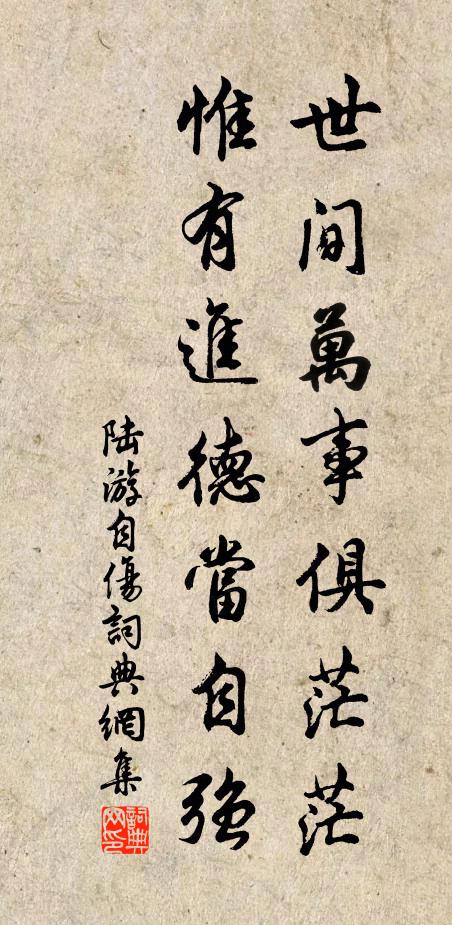 世间萬事俱茫茫
惟有進德當自强
陆游自傷詞典網集
詞典网印